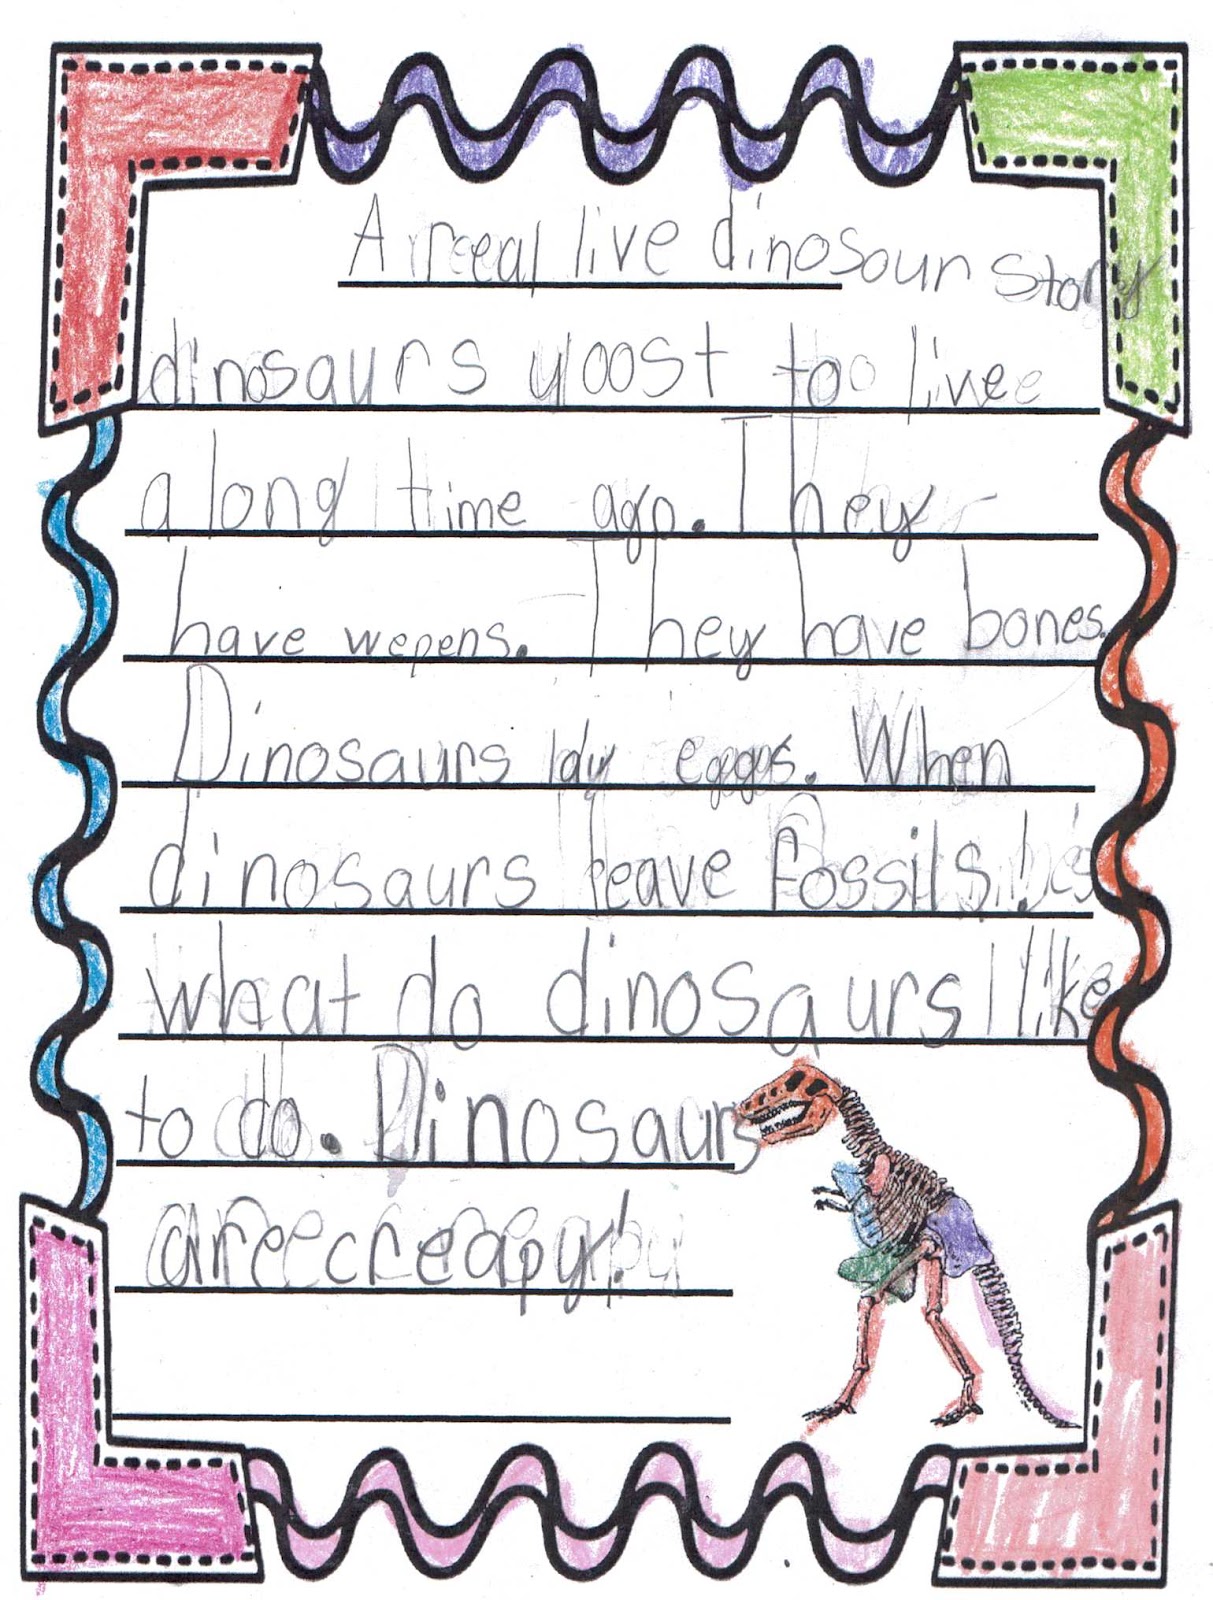 A reeal live dinosour story
dinosaurs yoost to live
a long time ago. They
have wepens. They have bones.
Dinosaurs lay eggs. When
dinosaurs leave fossils!
what do dinosaurs like
to do. Dinosaurs
are creapy!